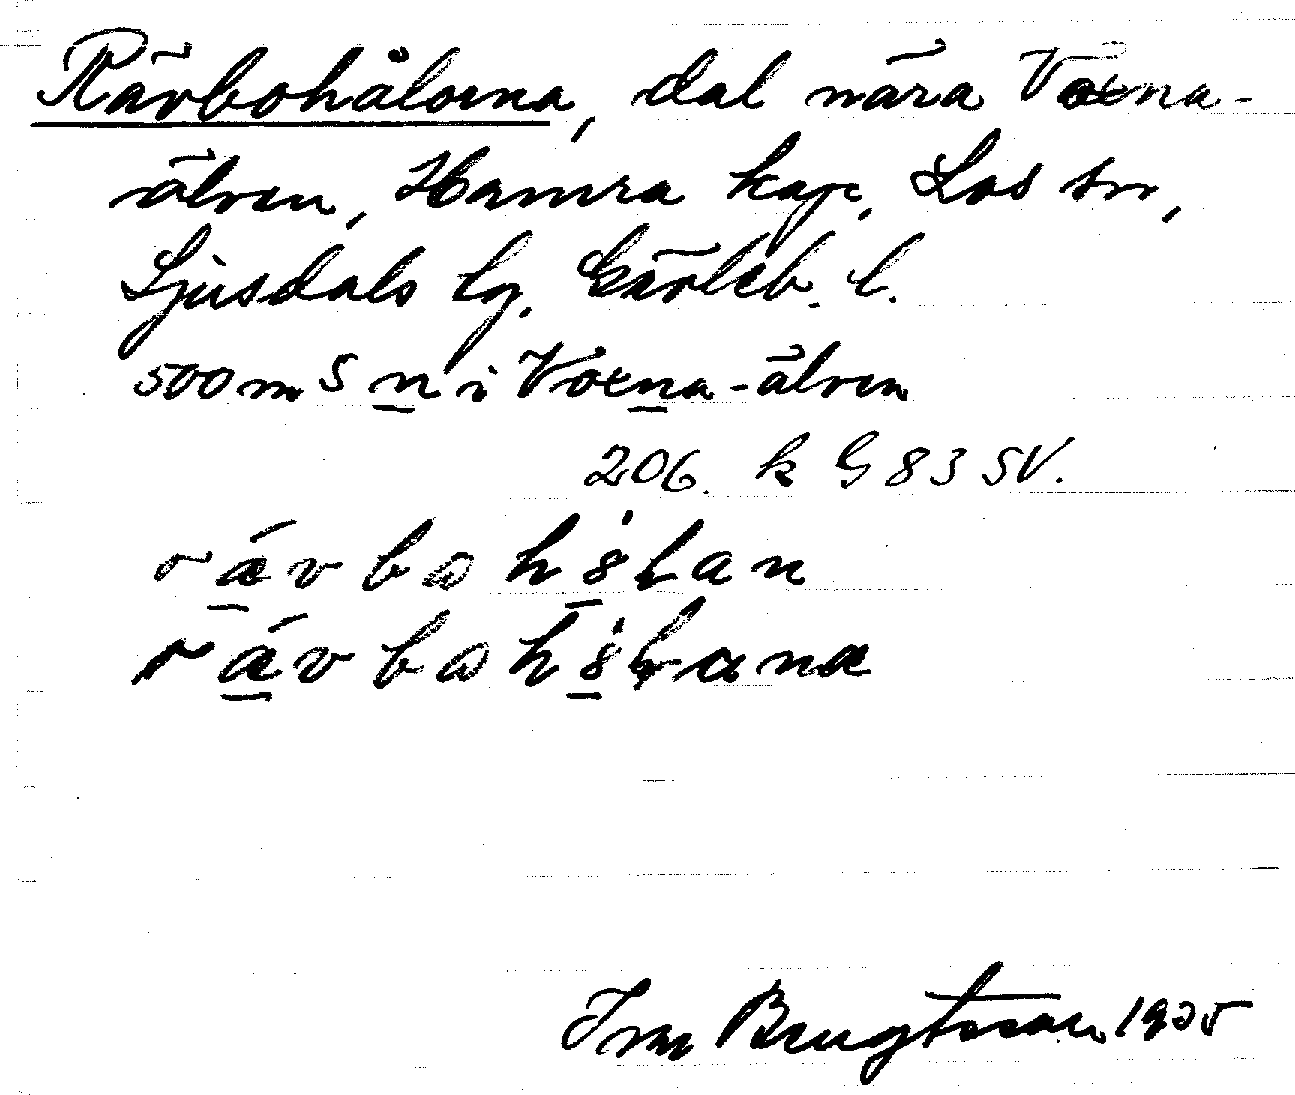 Rävbohålorna, dal nära Voxna-
älven, Hamra kap, Los sn,
Ljusdals tg. Gävleb. l.
500 m S n i Voxna-älven
206. k G 83 SV.
rävbo
rävbo
Bengtsson 1935